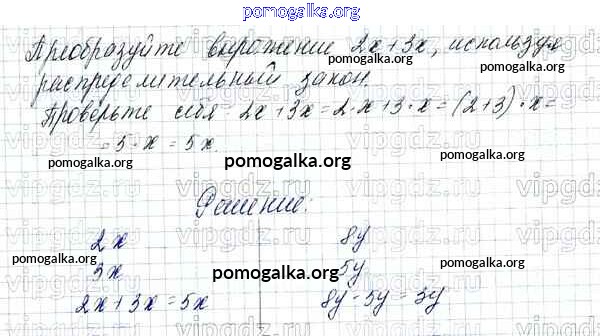 pomogalka.org
Преобразуйте выражение 2x+3x, используя
распределительный закон.
Проверьте себя 2x+3x=2·x+3·x=(2+3)·x=
=5·x=5x.
pomogalka.org
pomogalka.org
pomogalka.org
pomogalka.org
pomogalka.org
Решение:
2x 8y
3x 5y
pomogalka.org pomogalka.org pomogalka.org
2x+3x=5x 8y-5y=3y
vipgdz.ru vipgdz.ru vipgdz.ru